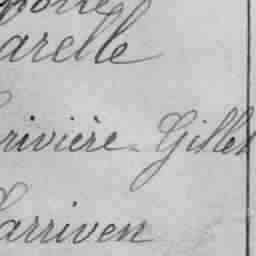 arelle
rivière Gilles
arriven